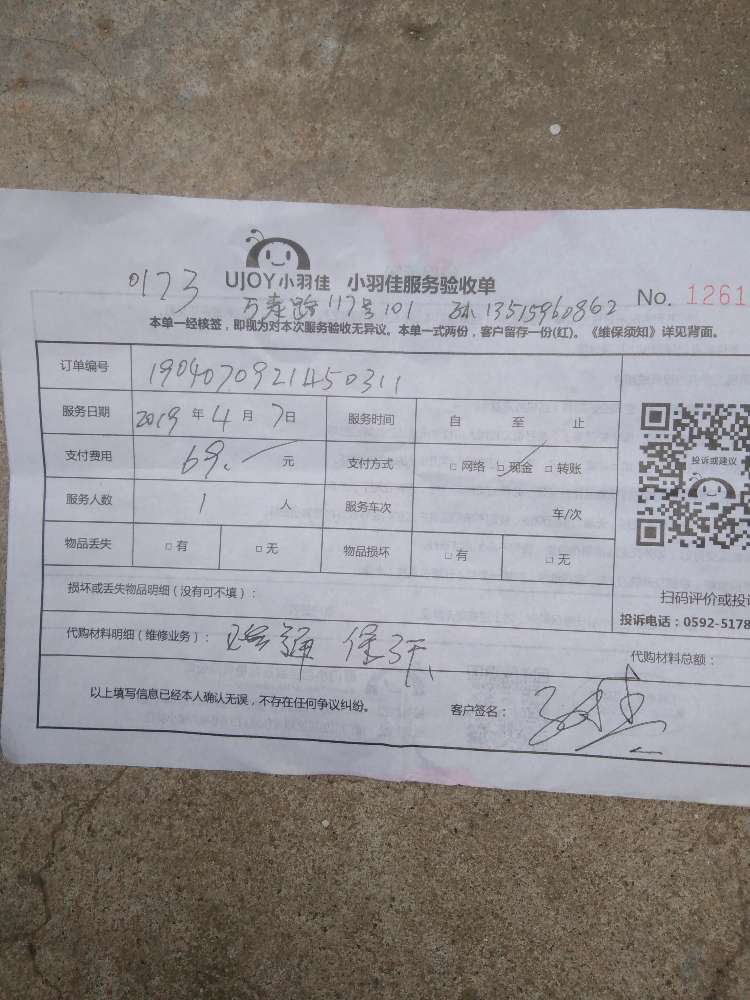 0173 UJOY小羽佳 小羽佳服务验收单
No. 1261
万寿路117号101 孙 13515960862
本单一经核签，即视为对本次服务验收无异议。本单一式两份，客户留存一份(红)。《维保须知》详见背面。
订单编号 190407092145031 1
服务日期 2019年4月7日 服务时间 自 至 止
支付费用 69. 元 支付方式 □ 网络 □ 现金 □ 转账
投诉或建议
服务人数 1 人 服务车次 车/次
物品丢失 □ 有 □ 无 物品损坏 □ 有 □ 无
损坏或丢失物品明细（没有可不填）：
扫码评价或投
投诉电话：0592-5178
代购材料明细（维修业务）： 疏通 保3天
代购材料总额：
以上填写信息已经本人确认无误，不存在任何争议纠纷。 客户签名：